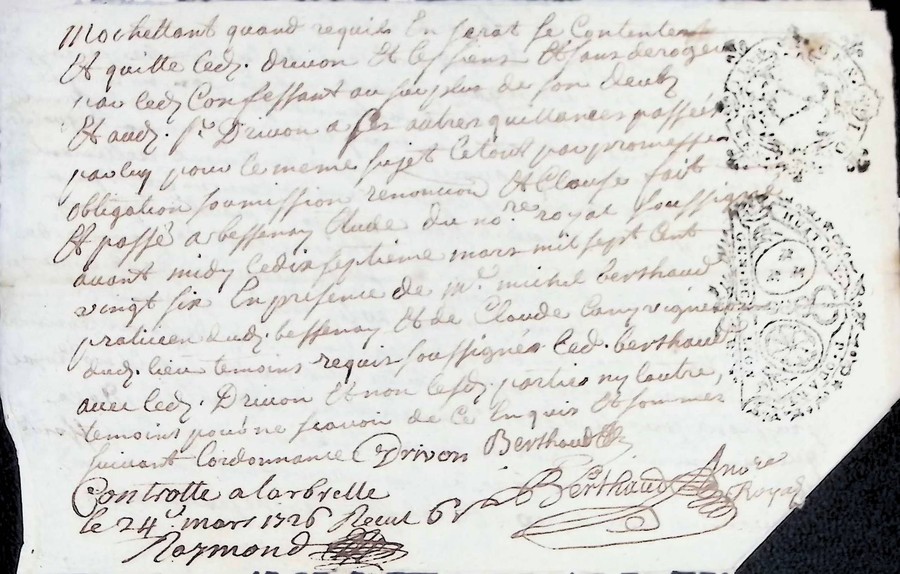 Mochettant quand requis En serat se Contentent
Et quitte led. Drivon Et les siens Et sans deroger
par led. Confessant au surplus de son deub
Et aud. Sr. Drivon a ses autres quittances passées
par luy pour le meme sujet Le tout par promesse
obligation soumission renonciõn Et Clause fait
Et passé a bessenay Etude du nore. royal soussigné
avant midy Le dix septieme mars mil sept Cent
vingt six En presence de Mr. michel berthaud
praticien dud. bessenay Et de Claude
dud. lieu temoins requis soussignés Led. berthaud
avec led. Drivon Et non lesd. parties ny lautre,
temoins pour ne scavoir de Ce Enquis Et sommes
suivant Lordonnance Drivon Berthaud
Berthaud Nore Royal
Controllé a larbrelle
le 24e. mars 1726 Recut 6s
Raymond